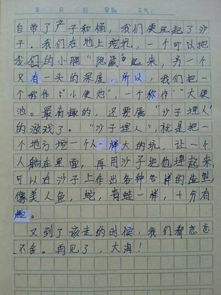 自带了产子和桶，我们便玩起了沙
子。我们在地上挖孔，一个可以把
我们的小腿“隐藏”起来，另一个
只有一头的深度。所以，我们把一
个称作“小便池”，一个称作“大便
池。最有趣的，还要属“沙子埋人”
的游戏了。“沙子埋人”，就是把一
个地方挖一个人一样大的坑，让一个
人躺在里面，再用沙子把他埋起来，
可以在沙子上作出各种各样的造型，
像美人鱼，蛇，青蛙一样，十分有
趣。
又到了该走的时候，我们都恋恋
不舍。再见了，大海！